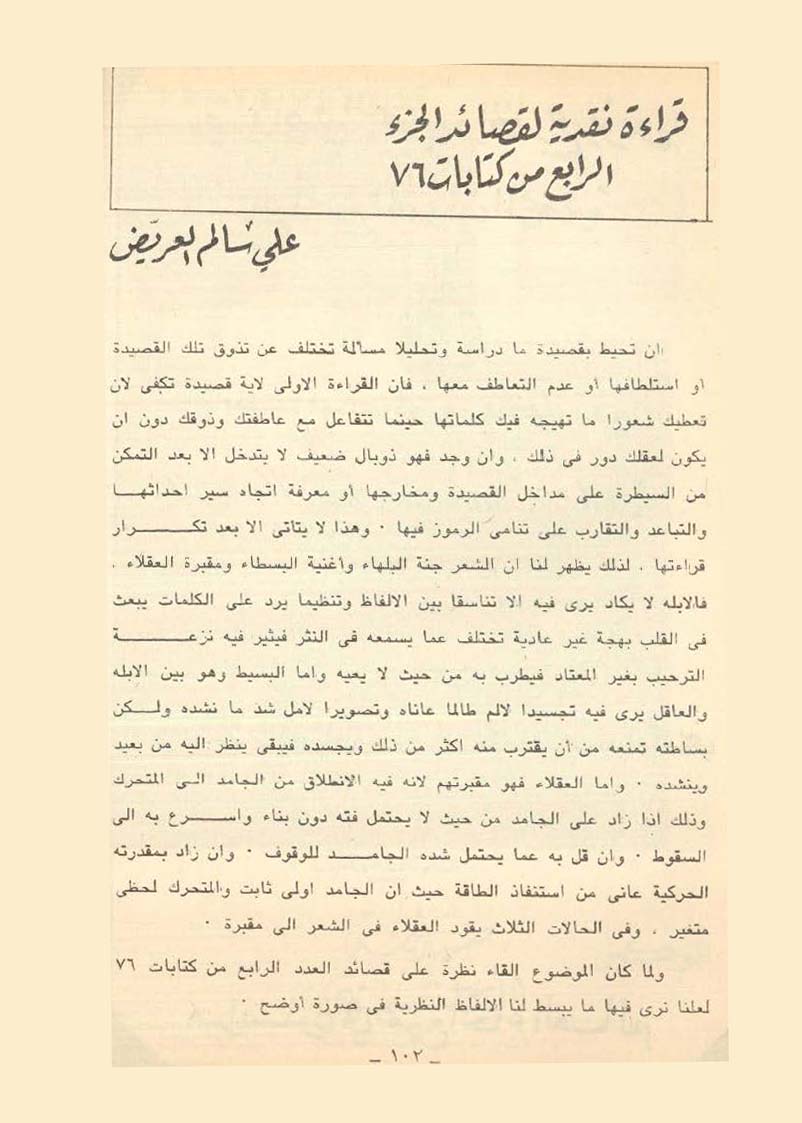 قراءة نقدية لقصائد الجزء
الرابع من كتابات ٧٦
علي سالم العريّض
ان تحيط بقصيدة ما دراسة وتحليلا مسالة تختلف عن تذوق تلك القصيدة
أو استلطافها أو عدم التعاطف معها ، فان القراءة الاولى لاية قصيدة تكفى لان
تعطيك شعورا ما تهيجه فيك كلماتها حينما تتفاعل مع عاطفتك وذوقك دون ان
يكون لعقلك دور فى ذلك ، وان وجد فهو ذوبال ضعيف لا يتدخل الا بعد التمكن
من السيطرة على مداخل القصيدة ومخارجها أو معرفة اتجاه سير احداثهـا
والتباعد والتقارب على تنامى الرموز فيها ٠ وهذا لا يتاتى الا بعد تكـــــرار
قراءتها ، لذلك يظهر لنا ان الشعر جنة البلهاء وأغنية البسطاء ومقبرة العقلاء ،
فالابله لا يكاد يرى فيه الا تناسقا بين الالفاظ وتنظيما يرد على الكلمات يبعث
فى القلب بهجة غير عادية تختلف عما يسمعه فى النثر فيثير فيه نزعــــــــة
الترحيب بغير المعتاد فيطرب به من حيث لا يعيه واما البسيط وهو بين الابله
والعاقل يرى فيه تجسيدا لالم طالما عاناه وتصويرا لامل شد ما نشده ولــكن
بساطته تمنعه من أن يقترب منه اكثر من ذلك ويجسده فيبقى ينظر اليه من بعيد
وينشده ٠ واما العقلاء فهو مقبرتهم لانه فيه الانطلاق من الجامد الـى المتحرك
وذلك اذا زاد على الجامد من حيث لا يحتمل فته دون بناء واســــرع به الى
السقوط ٠ وان قل به عما يحتمل شده الجامــــد للوقوف ٠ وان زاد بمقدرته
الحركية عانى من استنفاذ الطاقة حيث ان الجامد اولى ثابت والمتحرك لحظى
متغير ، وفى الحالات الثلاث يقود العقلاء فى الشعر الى مقبرة ٠
ولما كان الموضوع القاء نظرة على قصائد العدد الرابع من كتابات ٧٦
لعلنا نرى فيها ما يبسط لنا الالفاظ النظرية فى صورة أوضح ٠
ـ ١٠٢ ـ